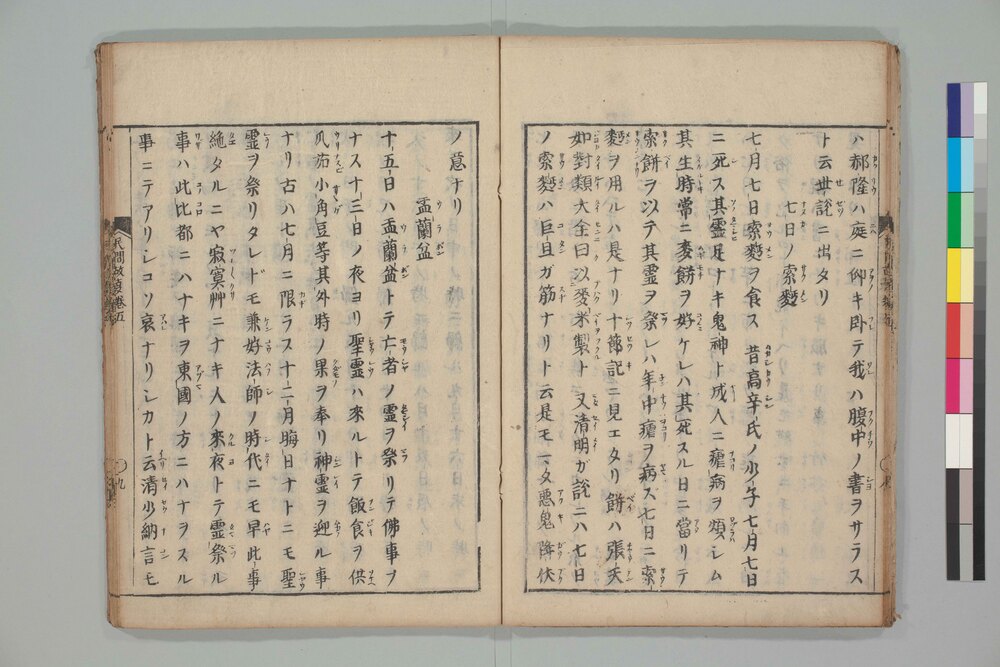 ハ郝隆ハ庭ニ仰キ卧テ我ハ腹中ノ書ヲサラス
ト云世説ニ出タリ
七日ノ索麪
七月七日索麪ヲ食ス昔高辛氏ノ少子七月七日
ニ死ス其霊足ナキ鬼神ト成人ニ瘧病ヲ煩シム
其生時常ニ麥餅ヲ好ケレハ其死スル日ニ當リテ
索餅ヲ以テ其霊ヲ祭レハ年中瘧ヲ病ス七日ニ索
麪ヲ用ルハ是ナリ十節記ニ見エタリ餅ハ張天
如對類大全曰以麥米製ト又清明ガ説ニハ七日
ノ索麪ハ巨旦ガ筋ナリト云是モマタ悪鬼降伏
ノ意ナリ
盂蘭盆
十五日ハ盂蘭盆トテ亡者ノ霊ヲ祭リテ佛事ヲ
ナス十三日ノ夜ヨリ聖霊ハ來ルトテ飯食ヲ供
瓜茄小角豆等其外時ノ果ヲ奉リ神霊ヲ迎ル事
ナリ古ハ七月ニ限ラス十二月晦日ナトニモ聖
霊ヲ祭リタレドモ兼好法師ノ時代ニモ早此事
絶タルニヤ寂寞艸ニナキ人ノ來夜トテ霊祭ル
事ハ此比都ニハナキヲ東國ノ方ニハナヲスル
事ニテアリシコソ哀ナリシカト云清少納言モ
民間故事巻五
九